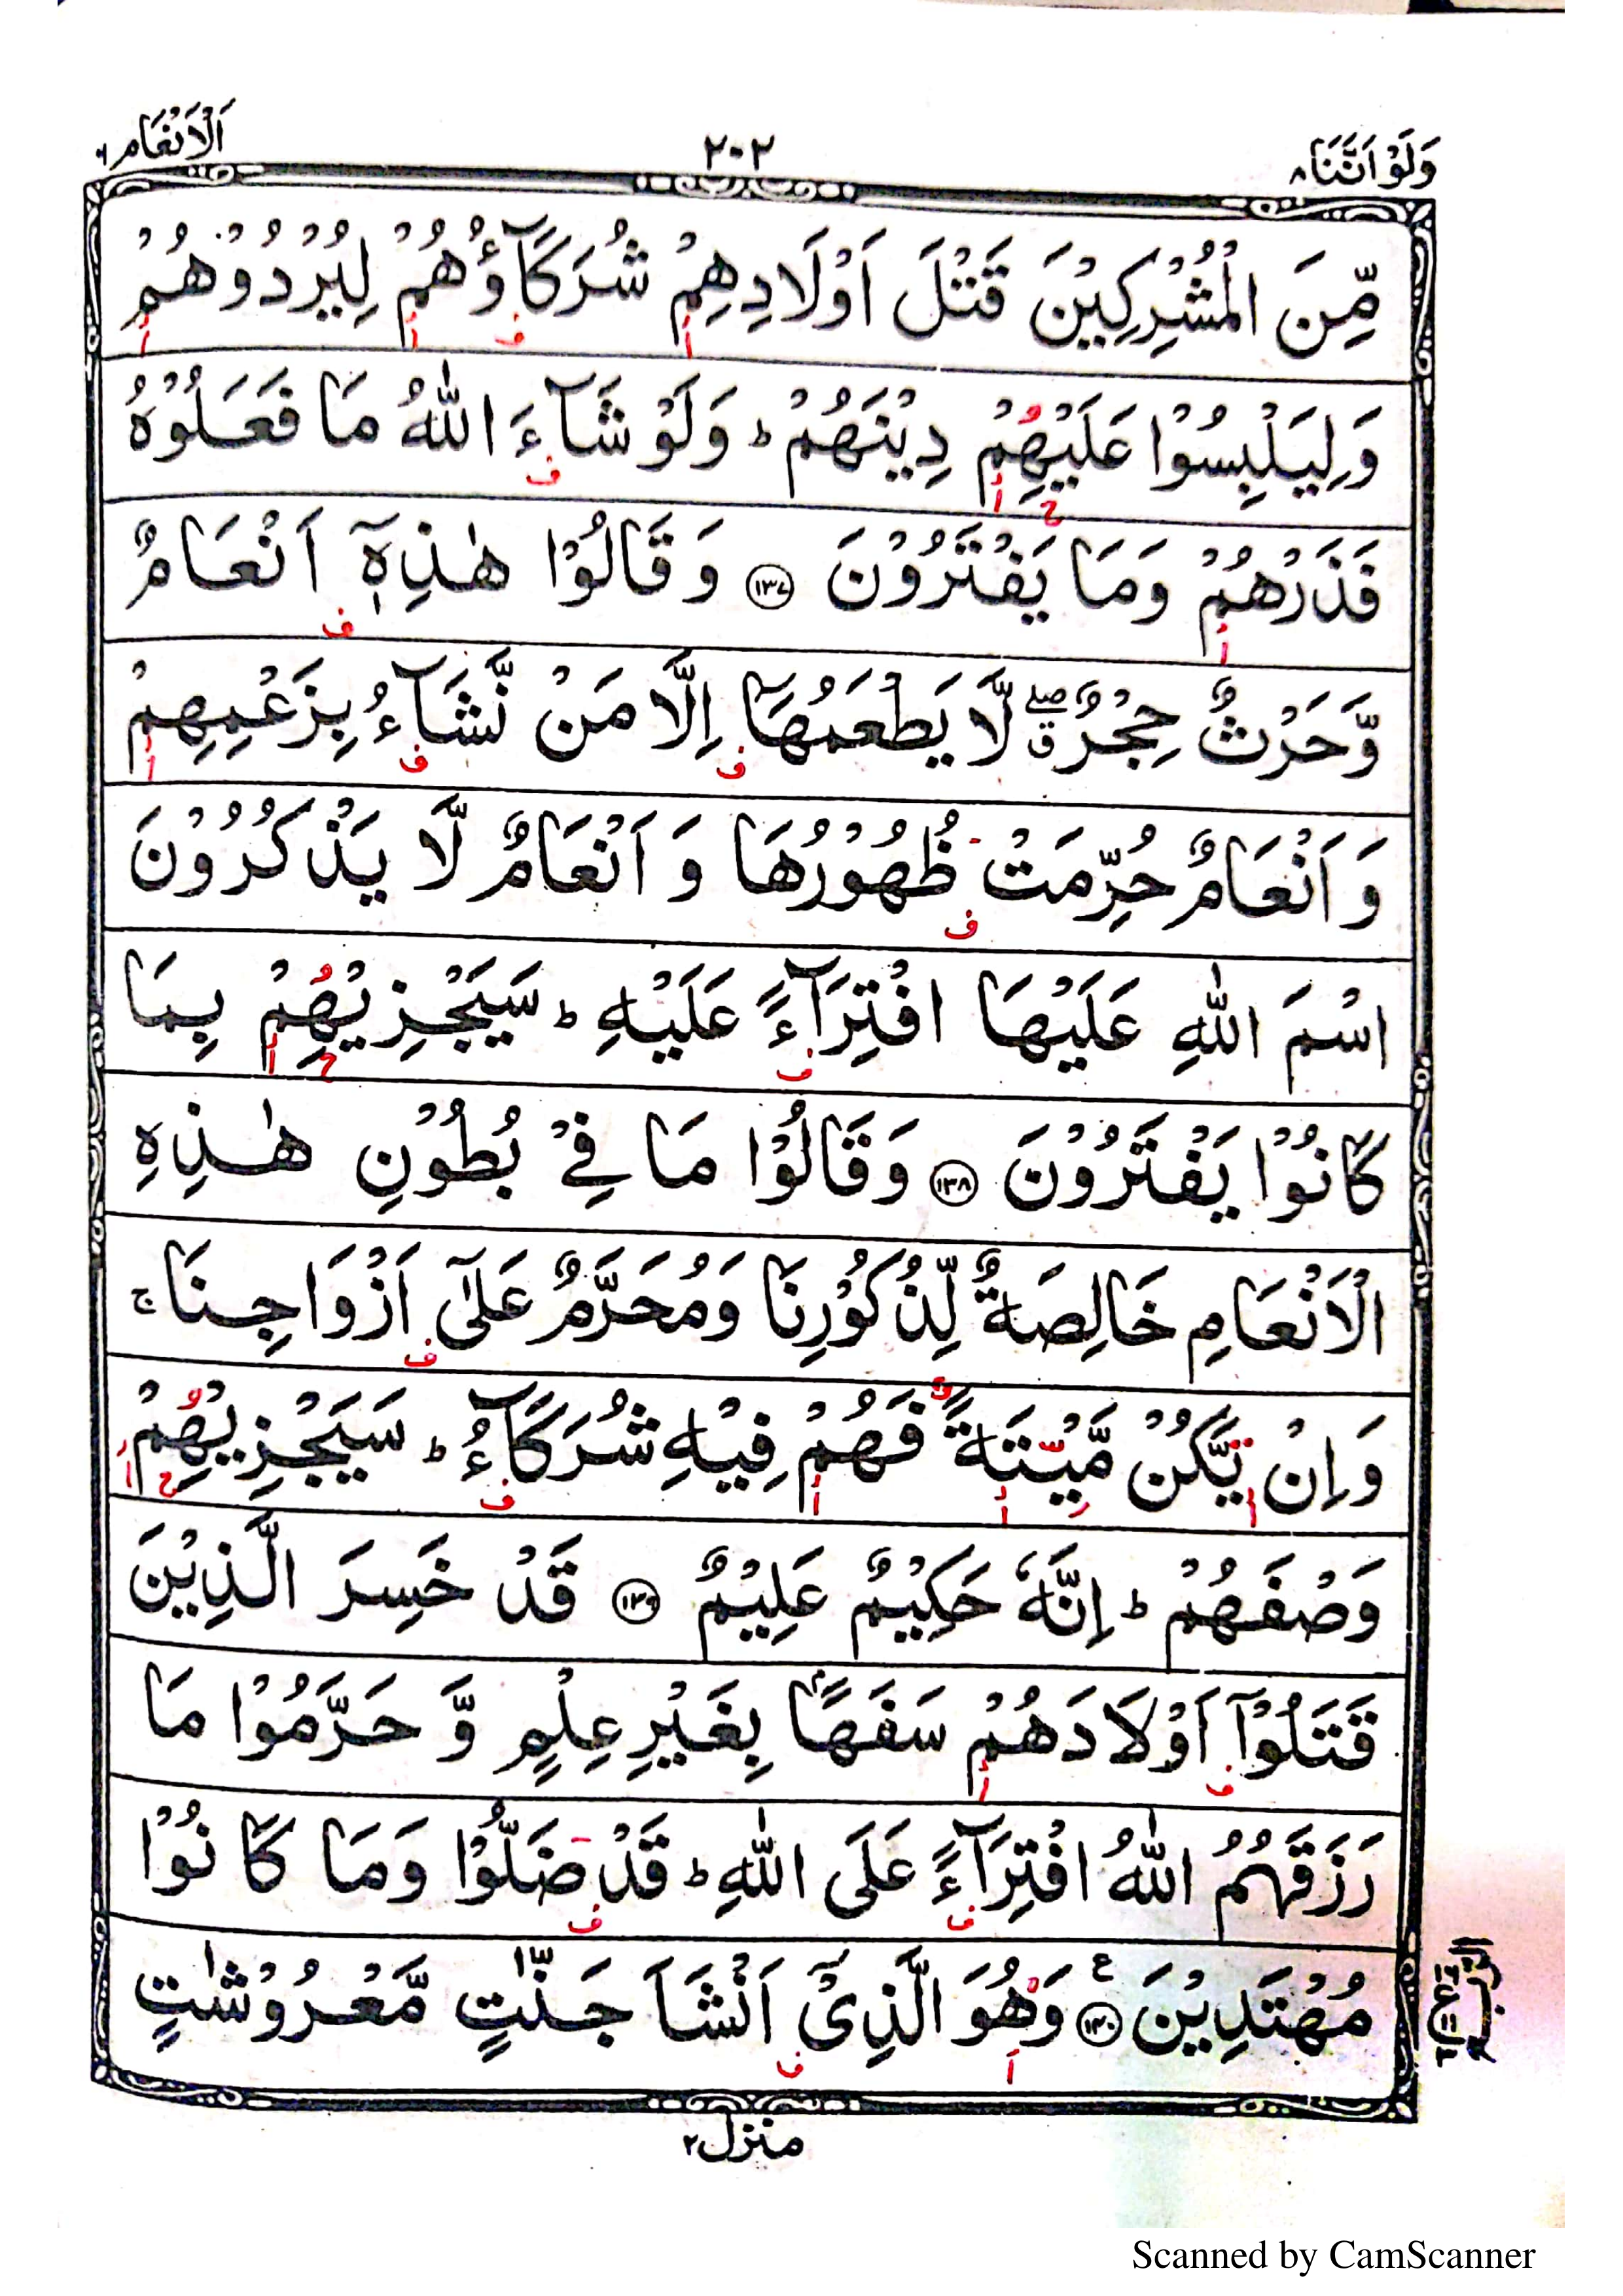 وَلَوْ اَنَّنَا ٨
٢٠٢
اَلْاَنْعَام ٦
مِّنَ الْمُشْرِكِيْنَ قَتْلَ اَوْلَادِهِمْ شُرَكَآؤُهُمْ لِيُرْدُوْهُمْ
وَلِيَلْبِسُوْا عَلَيْهِمْ دِيْنَهُمْ ؕ وَلَوْ شَآءَ اللّٰهُ مَا فَعَلُوْهُ
فَذَرْهُمْ وَمَا يَفْتَرُوْنَ ١٣٧ وَقَالُوْا هٰذِهٖٓ اَنْعَامٌ
وَّحَرْثٌ حِجْرٌ ۖق لَّا يَطْعَمُهَاۤ اِلَّا مَنْ نَّشَآءُ بِزَعْمِهِمْ
وَاَنْعَامٌ حُرِّمَتْ ظُهُوْرُهَا وَاَنْعَامٌ لَّا يَذْكُرُوْنَ
اسْمَ اللّٰهِ عَلَيْهَا افْتِرَآءً عَلَيْهِ ؕ سَيَجْزِيْهِمْ بِمَا
كَانُوْا يَفْتَرُوْنَ ١٣٨ وَقَالُوْا مَا فِيْ بُطُوْنِ هٰذِهِ
الْاَنْعَامِ خَالِصَةٌ لِّذُكُوْرِنَا وَمُحَرَّمٌ عَلٰٓى اَزْوَاجِنَا ۚ
وَاِنْ يَّكُنْ مَّيْتَةً فَهُمْ فِيْهِ شُرَكَآءُ ؕ سَيَجْزِيْهِمْ
وَصْفَهُمْ ؕ اِنَّهٗ حَكِيْمٌ عَلِيْمٌ ١٣٩ قَدْ خَسِرَ الَّذِيْنَ
قَتَلُوْٓا اَوْلَادَهُمْ سَفَهًۢا بِغَيْرِ عِلْمٍ وَّحَرَّمُوْا مَا
رَزَقَهُمُ اللّٰهُ افْتِرَآءً عَلَى اللّٰهِ ؕ قَدْ ضَلُّوْا وَمَا كَانُوْا
مُهْتَدِيْنَ ١٤٠ ع وَهُوَ الَّذِيْٓ اَنْشَاَ جَنّٰتٍ مَّعْرُوْشٰتٍ
منزل ٢
Scanned by CamScanner